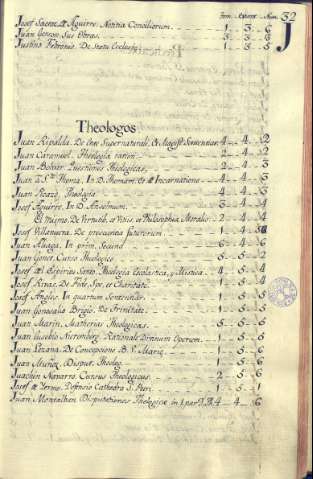 Tom. Estant. Num. 32
J
Josef Saenz de Aguirre. Notitia Conciliorum. 1 3 6
Juan Gerson. Sus Obras. 3 3
Justino Febronio. De Statu Ecclesiæ. 1 3 5
Theologos
Juan Ripalda. De Ente Supernaturali, et Magist. Sententiar. 4 4 2
Juan Caramuel. Theologia ration. 2 4 2
Juan Bosier Questiones Theologicas. 2 4 3
Juan Sto. Thoma. In D. Thomam, et de Incarnatione 4 4 3
Juan Theologia 4 4 3
Josef Aguirre. In D. Anselmum. 3 4 4
El mismo. De Virtutib. et Vitiis, et Philosophia Moralis. 2 4 4
Josef Villanueva. De præscientia futurorum 1 4
Juan Aliaga. In prim. Second 6 4 6
Juan Goner. Curso Theologico 5 5 2
Josef del Espiritu Santo. Theologia Escolastica, y Mistica. 4 5 4
Josef De Fide, Spe, et Charitate. 1 5 4
Josef Angles. In quartum Sententiar. 1 5 5
Juan De Trinitate. 1 5 5
Juan Marin. Materias Theologicas. 5 5 6
Juan Eusebio Nieremberg. Rationale Divinum Operum. 1 5 5
Juan Lezana. De Concepcione B. V. Mariæ. 1 5 6
Juan Muñoz. Disput. Theolog. 1 5 6
Juachin Navarro. Cursus Theologicus. 2 5 6
Josef de Yermo. Defensio Cathedra S. Petri. 1 5 1
Juan Montalban Disputationes Theologicæ in 1 part. D. 4 4 6